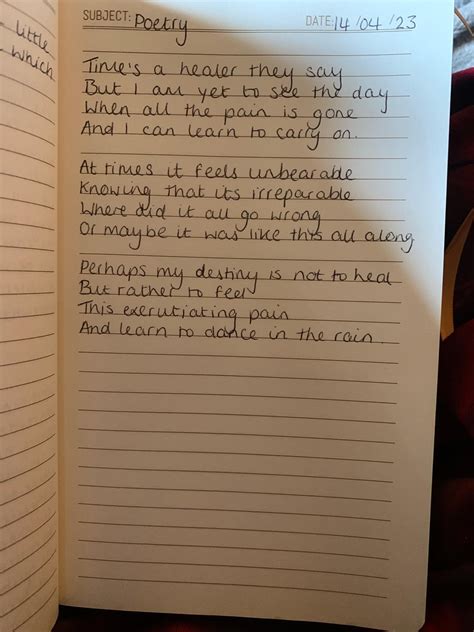 little
which
SUBJECT: Poetry DATE: 14/04/23
Time's a healer they say
But I am yet to see the day
When all the pain is gone
And I can learn to carry on.
At times it feels unbearable
Knowing that its irreparable
Where did it all go wrong
Or maybe it was like this all along
Perhaps my destiny is not to heal
But rather to feel
This exerutiating pain
And learn to dance in the rain.